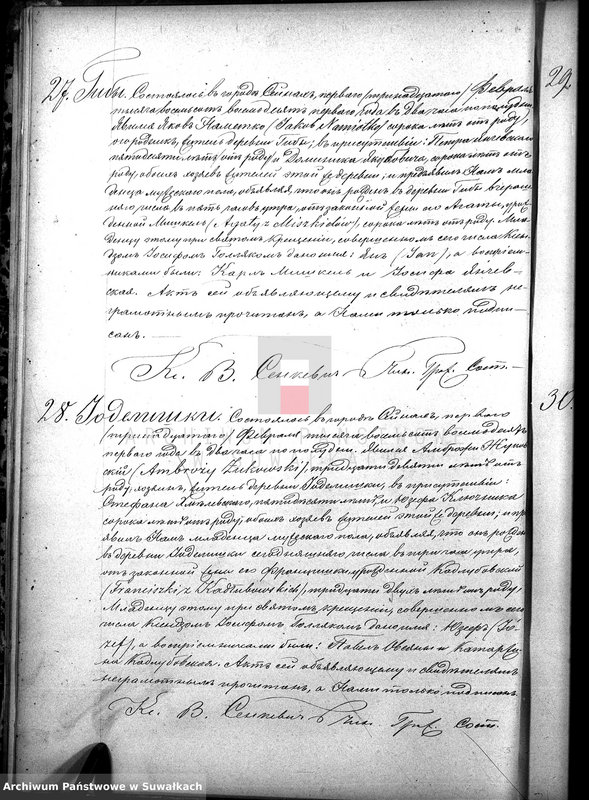 27. Гибы. Состоялось въ городѣ Сейнахъ, перваго /тринадцатаго/ Февраля
тысяча восемьсотъ восемьдесятъ перваго года въ два часа пополудни.
Явился Яковъ Намѣтко /Jakób Namiotko/ сорока лѣтъ отъ роду,
житель деревни Гибы, въ присутствіи: Петра
пятидесяти лѣтъ отъ роду и Доминика сорока лѣтъ отъ
роду, обоихъ хозяевъ жителей этой же деревни; и предъявилъ Намъ мла-
денца мужескаго пола, объявляя, что онъ родился въ деревнѣ Гибы вчераш-
няго числа въ пять часовъ утра, отъ законной жены его Агаты, урож-
денной Мишкель /Agaty z Miszkielów/, сорока лѣтъ отъ роду. Мла-
денцу этому при святомъ крещеніи, совершенномъ сего числа Ксен-
дзомъ Іосифомъ дано имя: Янъ /Jan/, а воспріем-
никами были: Карлъ Мишкель и Іозефа Янчев-
ская. Актъ сей объявляющему и свидѣтелямъ не-
грамотнымъ прочитанъ, а Нами только подпи-
санъ.
Кс. В. Сенкевичъ Чин. Граж. Сост.
28. Іоделишки. Состоялось въ городѣ Сейнахъ, перваго
/тринадцатаго/ Февраля тысяча восемьсотъ восемьдесятъ
перваго года въ два часа по полудни. Явился Амброзій Жуков-
скій /Ambroży Żukowski/, тридцати девяти лѣтъ отъ
роду, хозяинъ, житель деревни Іоделишки, въ присутствіи:
Стефана пятидесяти лѣтъ и Юзефа
сорока лѣтъ отъ роду, обоихъ хозяевъ жителей этой же деревни; и пред-
явилъ Намъ младенца мужескаго пола, объявляя, что онъ родился
въ деревнѣ Іоделишки сегодняшняго числа въ три часа утра,
отъ законной жены его Францишки, урожденной Кадлубовской
/Franciszki z Kadłubowskich/, тридцати двухъ лѣтъ отъ роду;
Младенцу этому при святомъ крещеніи, совершенномъ сего
числа Ксендзомъ Іосифомъ дано имя: Юзефъ /Jó-
zef/, а воспріемниками были: Павелъ и Катаржи-
на Кадлубовская. Актъ сей объявляющему и свидѣтелямъ
неграмотнымъ прочитанъ, а Нами только подписанъ.
Кс. В. Сенкевичъ Чин. Граж. Сост.
29.
30.
Archiwum Państwowe w Suwałkach